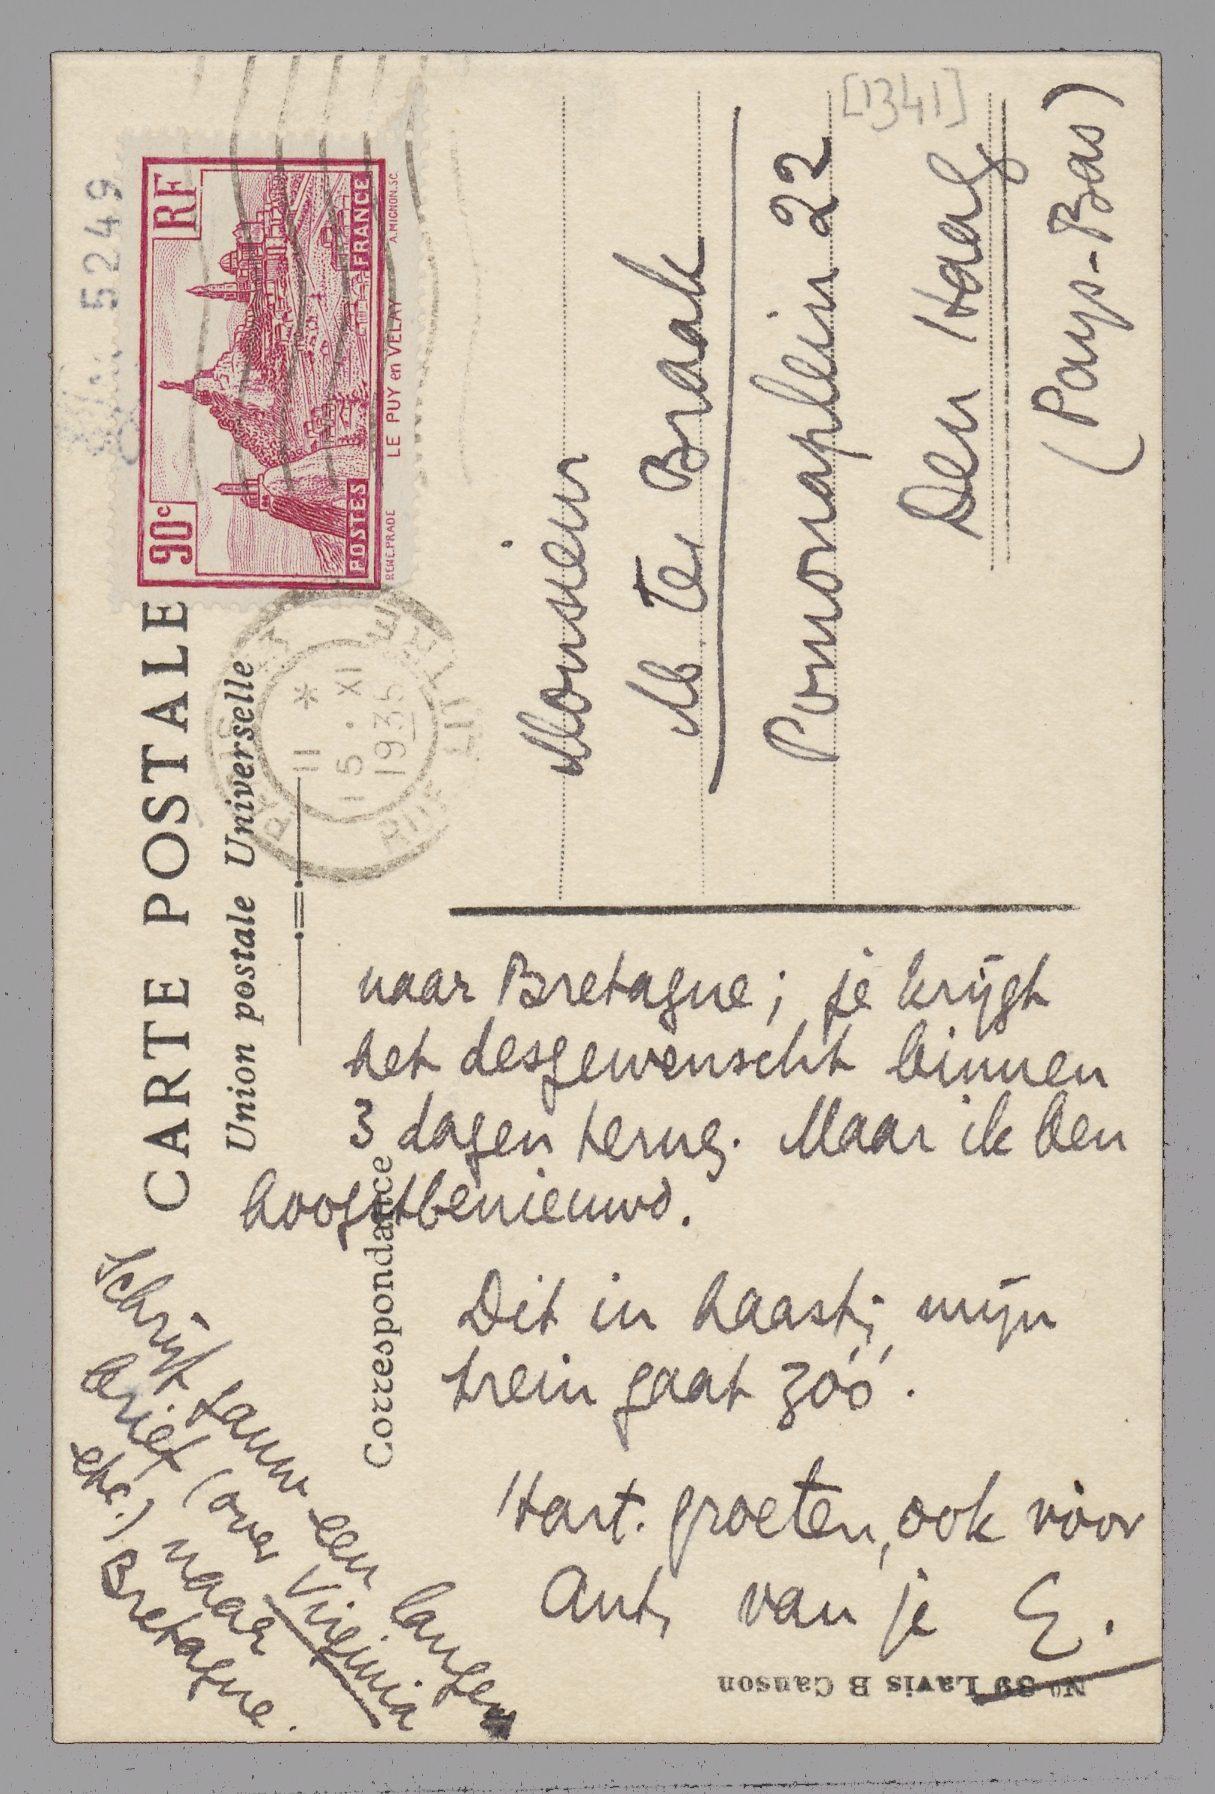 [1341]
5249
RF
90c
POSTES
FRANCE
LE PUY en VELAY
A.MIGNON.SC.
11 *
15 · XI
1935
CARTE POSTALE
Union postale Universelle
Correspondance
Monsieur
M. ter Braak
Pomonaplein 22
Den Haag
(Pays-Bas)
naar Bretagne; je krijgt
het desgewenscht binnen
3 dagen terug. Maar ik ben
hoogstbenieuwd.
Dit in haast; mijn
trein gaat zóó.
Hart. groeten, ook voor
Ant, van je E.
Schrijf gauw een langen
brief (over Virginia
etc.) naar
Bretagne.
No 89 Lavis B Canson